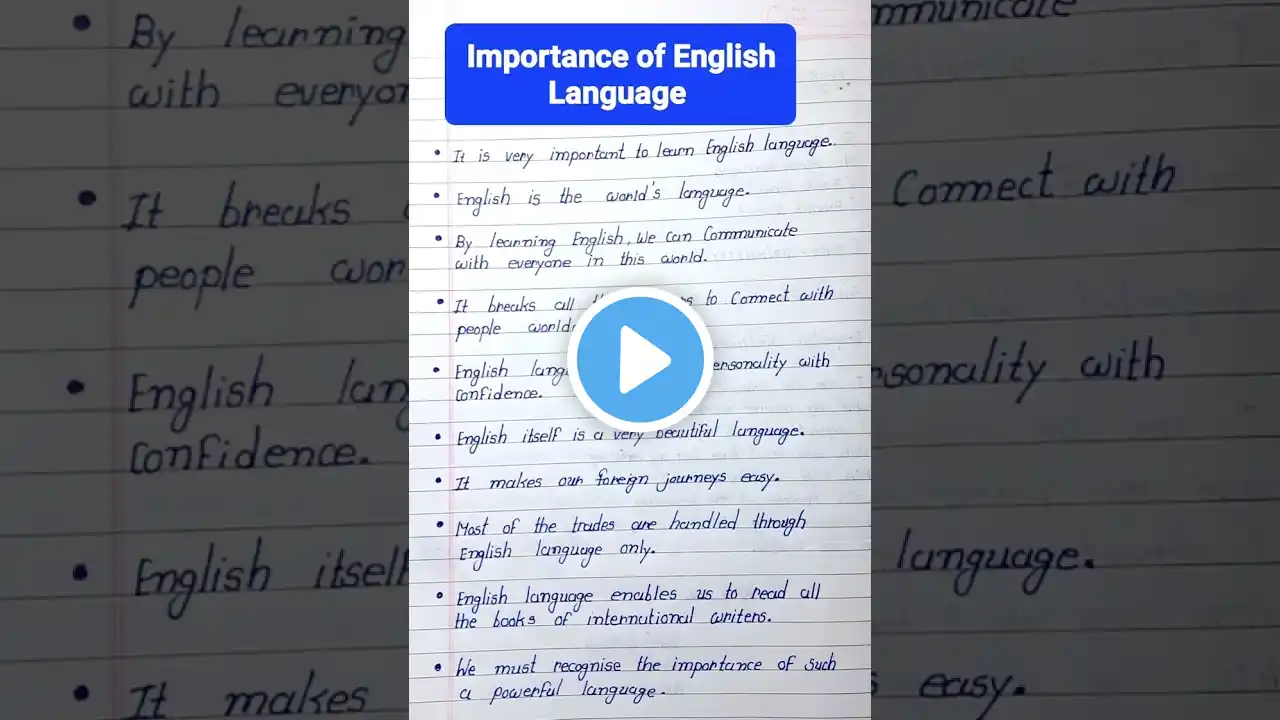 Importance of English
Language
• It is very important to learn English language.
• English is the world's language.
• By learning English, We can Communicate
with everyone in this world.
• It breaks all to Connect with
people
• English ersonality with
Confidence.
• English itself is a very beautiful language.
• It makes our foreign journeys easy.
• Most of the trades are handled through
English language only.
• English language enables us to read all
the books of international writers.
• We must recognise the importance of such
a powerful language.
• By learning
with
• It breaks
people
• English
Confidence.
• English
• It makes
mmunicate
Connect with
rsonality with
language.
easy.